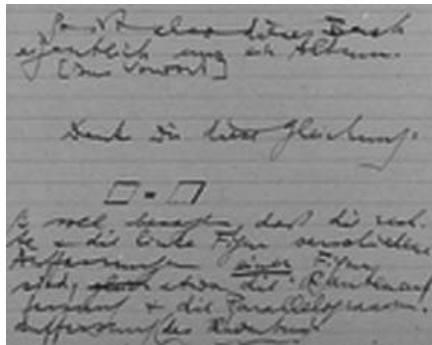 So ist also dieses Buch
eigentlich nur ein Album.
[Ins Vorwort]
Denk Dir diese Gleichung:
▱ = ▱
Es soll besagen, daß die rech-
te + die linke Figur verschiedene
Auffassungen einer Figur
sind, etwa die
+ die Parallelogramm-
Auffassung des